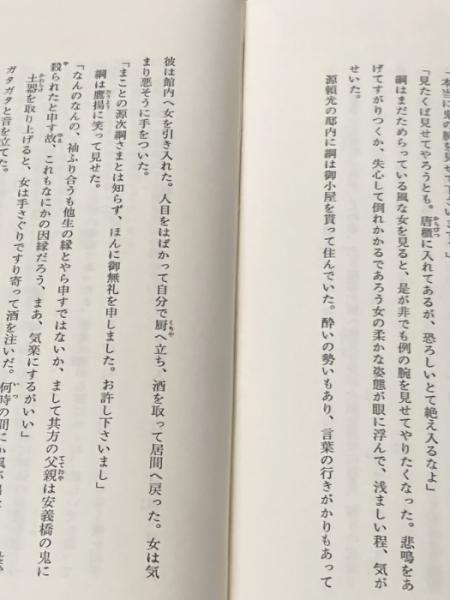 「本当に鬼の腕を見せて下さいまして？」
「見たくば見せてやろうとも。唐櫃に入れてあるが、恐ろしいとて絶え入るなよ」
綱はまだためらっている風な女を見ると、是が非でも例の腕を見せてやりたくなった。悲鳴をあ
げてすがりつくか、失心して倒れかかるであろう女の柔かな姿態が眼に浮んで、浅ましい程、気が
せいた。
源頼光の邸内に綱は御小屋を貰って住んでいた。酔いの勢いもあり、言葉の行きがかりもあって
彼は館内へ女を引き入れた。人目をはばかって自分で厨へ立ち、酒を取って居間へ戻った。女は気
まり悪そうに手をついた。
「まことの源次綱さまとは知らず、ほんに御無礼を申しました。お許し下さいまし」
綱は鷹揚に笑って見せた。
「なんのなんの、袖ふり合うも他生の縁とやら申すではないか、まして其方の父親は安義橋の鬼に
殺られたと申す故、これもなにかの因縁だろう、まあ、気楽にするがいい」
土器を取り上げると、女は手さぐりですり寄って酒を注いだ。何時の間にか風が
ガタガタと音を立てた。